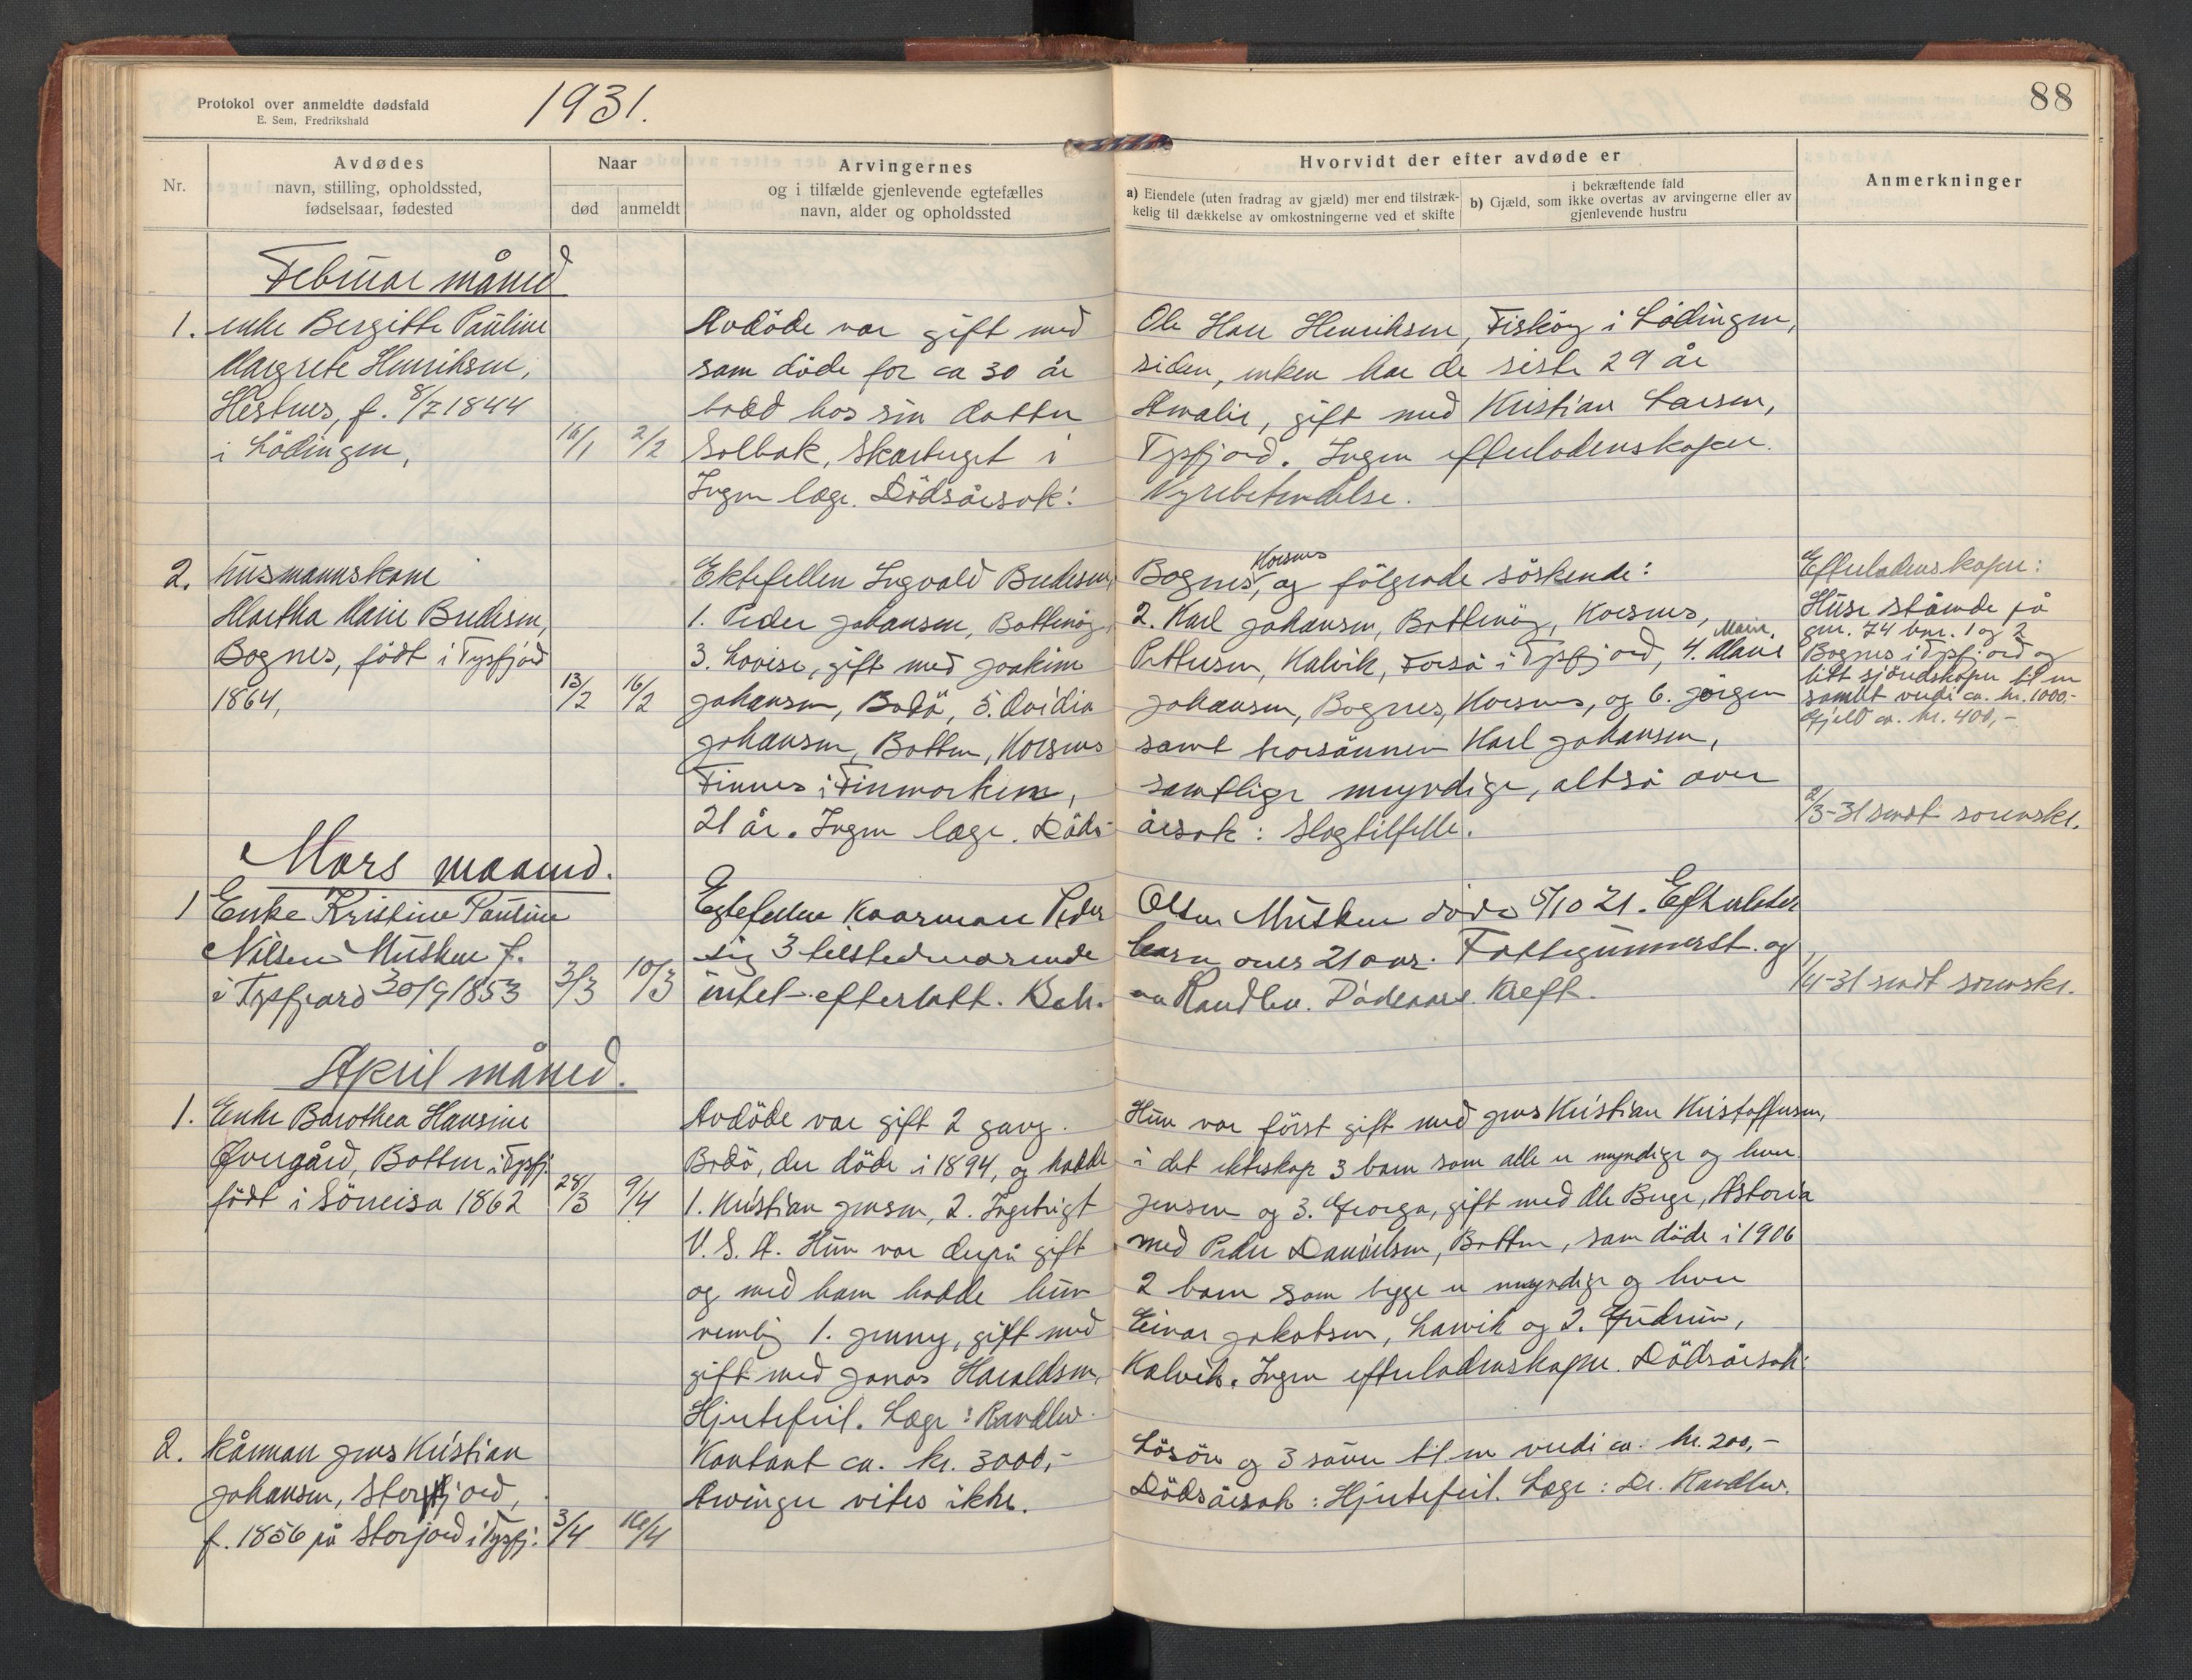 Protokol over anmeldte dødsfald
E. Sem, Fredrikshald
1931.
88
Nr.
Avdødes
navn, stilling, opholdssted,
fødselsaar, fødested
Naar
død
anmeldt
Arvingernes
og i tilfælde gjenlevende egtefælles
navn, alder og opholdssted
Hvorvidt der efter avdøde er
a) Eiendele (uten fradrag av gjæld) mer end tilstræk-
kelig til dækkelse av omkostningerne ved et skifte
i bekræftende fald
b) Gjæld, som ikke overtas av arvingerne eller av
gjenlevende hustru
Anmerkninger
Februar måned
1. enke Bergitte Pauline
Margrete Henriksen,
Hestnes, f. 8/7 1844
i Lödingen,
16/1
2/2
Avdöde var gift med Ole Hau Henriksen, Fiskøy i Lödingen,
som döde for ca 30 år siden, enken har de siste 29 år
bodd hos sin datter Amalie, gift med Kristian Larsen,
Solbak, Skarberget i Tysfjord. Ingen efterladenskaper.
Ingen læge. Dödsårsak: Nyrebetendelse.
2. husmannskone
Martha Marie Bredesen,
Bognes, født i Tysfjord
1864,
13/2
16/2
Ektefellen Ingvald Bredesen, Bognes, Korsnes og fölgende söskende:
1. Peder Johansen, Bottenög, 2. Karl Johansen, Bottenög, Korsnes,
3. Lovise, gift med Joakim Pettersen, Kalvik, Forså i Tysfjord, 4. Marie Marie,
Johansen, Bodö, 5. Ovidia Johansen, Bognes, Korsnes, og 6. Jörgen
Johansen, Botten, Korsnes samt brorsönnen Karl Johansen,
Finnes i Finmarken, samtlige myndige, altså over
21 år. Ingen læge. Döds- årsak: Slagtilfelle.
Efterladenskaper:
Huse stående på
gnr. 74 bnr. 1 og 2
Bognes i Tysfjord og
litt sjöredskaper til en
samlet verdi ca. kr. 1000,-
Gjeld ca. kr. 400,-
2/3-31 sendt sorenskr.
Mars maaned.
1 Enke Kristine Pauline
Nilsen Musken f.
i Tysfjord 30/9 1853
3/3
10/3
Egtefellen Kaarman Peder Olsen Musken döde 5/10 21. Efterlater
sig 3 tilstedværende barn over 21 aar. Fattigunnerst. og
intet efterlatt. Beh. av Randlev. Dödsaars. Kreft.
1/4-31 sendt sorenskr.
April måned.
1. Enke Barothea Hansine
Övergård, Botten i Tysfj.
født i Sörreisa 1862
28/3
9/4
Avdöde var gift 2 gang. Hun var först gift med Jens Kristian Kristoffersen,
Bodö, der döde i 1894, og hadde i det ekteskap 3 barn som alle er myndige og hver
1. Kristian Jensen, 2. Ingebrigt Jensen og 3. Georga, gift med Ole Buge, Astoria
U. S. A. Hun var derpå gift med Peder Danielsen, Botten, som döde i 1906
og med ham hadde hun 2 barn som begge er myndige og hver
nemlig 1. Jenny, gift med Einar Jakobsen, Larvik og 2. Gudrun,
gift med Jonas Haraldsen, Kalvik. Ingen efterladenskaper. Dödsårsak:
Hjertefeil. Læge: Randlev.
2. kårman Jens Kristian
Johansen, Storjord,
f. 1856 på Storjord i Tysfj.
3/4
16/4
Kontant ca. kr. 3000,- Lösöre og 3 sauer til en verdi ca. kr. 200,-
Arvinger vites ikke. Dödsårsak: Hjertefeil. Læge: Dr. Randlev.